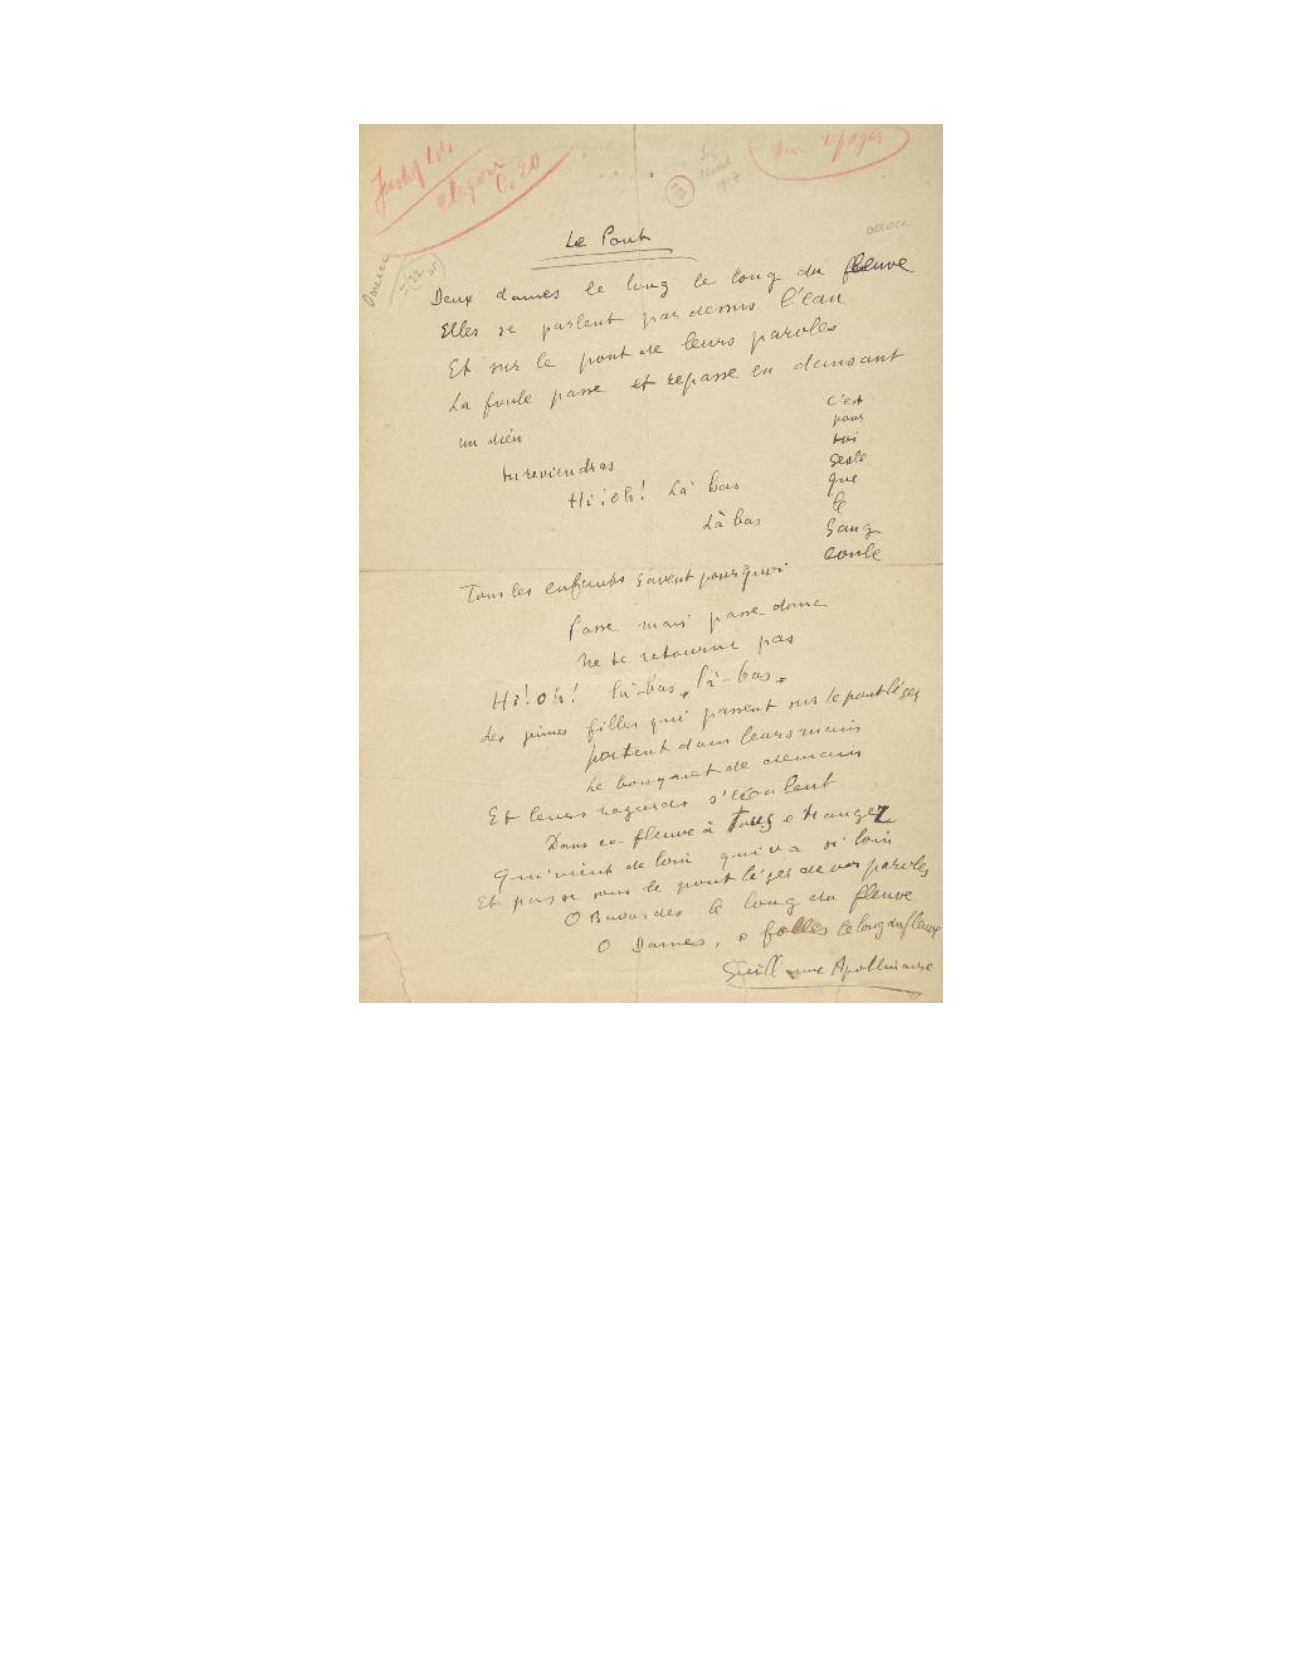 Justif 14
elzévir
C. 20
sur 2 pages
1917
Le Pont
Deux dames le long le long du fleuve
Elles se parlent par dessus l'eau
Et sur le pont de leurs paroles
La foule passe et repasse en dansant
un dieu
c'est
pour
toi
seule
que
le
sang
coule
tu reviendras
Hi! oh! Là bas
Là bas
Tous les enfants savent pourquoi
Passe mais passe donc
Ne te retourne pas
Hi! oh! là-bas, là-bas.
Les jeunes filles qui passent sur le pont léger
portent dans leurs mains
Le bouquet de demain
Et leurs regards s'écoulent
Dans ce fleuve à tous étranger
Qui vient de loin qui va si loin
Et passe sous le pont léger de vos paroles
O Bavardes le long du fleuve
O Dames, o folles le long du fleuve
Guillaume Apollinaire